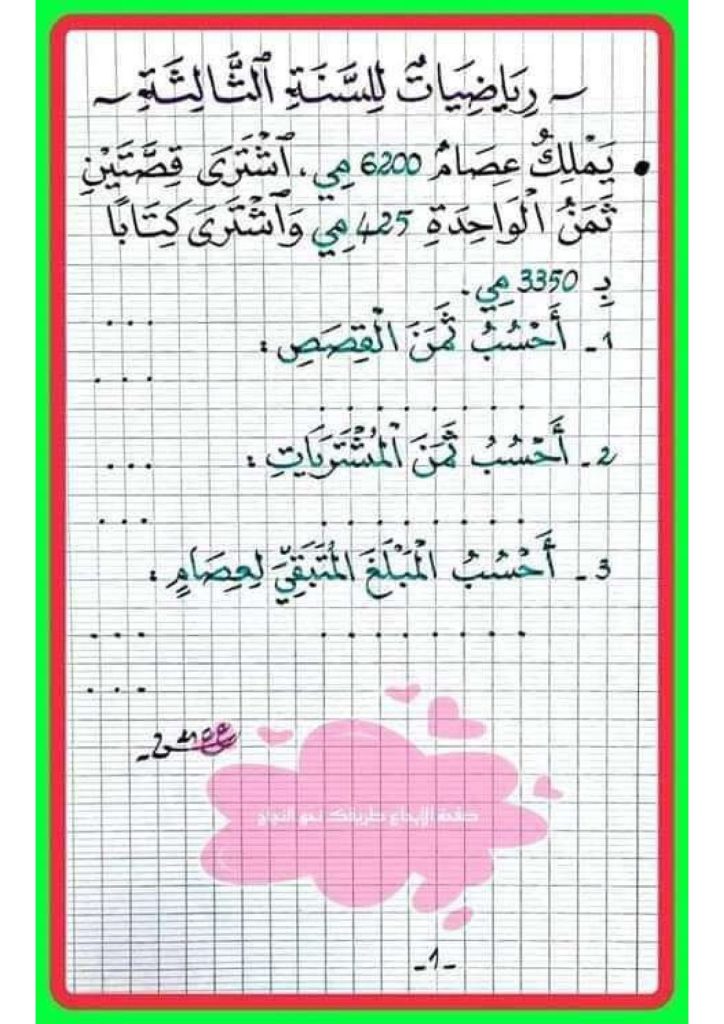 ~ رِيَاضِيَاتٌ لِلسَّنَةِ ٱلثَّالِثَةِ ~
• يَمْلِكُ عِصَامٌ 6200 مِي، ٱشْتَرَى قِصَّتَيْنِ
ثَمَنُ الْوَاحِدَةِ 425 مِي وَٱشْتَرَى كِتَابًا
بِـ 3350 مِي.
1 ـ أَحْسُبُ ثَمَنَ الْقِصَصِ :
2 ـ أَحْسُبُ ثَمَنَ الْمُشْتَرَيَاتِ :
3 ـ أَحْسُبُ الْمَبْلَغَ الْمُتَبَقِّيَ لِعِصَامٍ :
صفحة الإبداع طريقك نحو النجاح
-1-